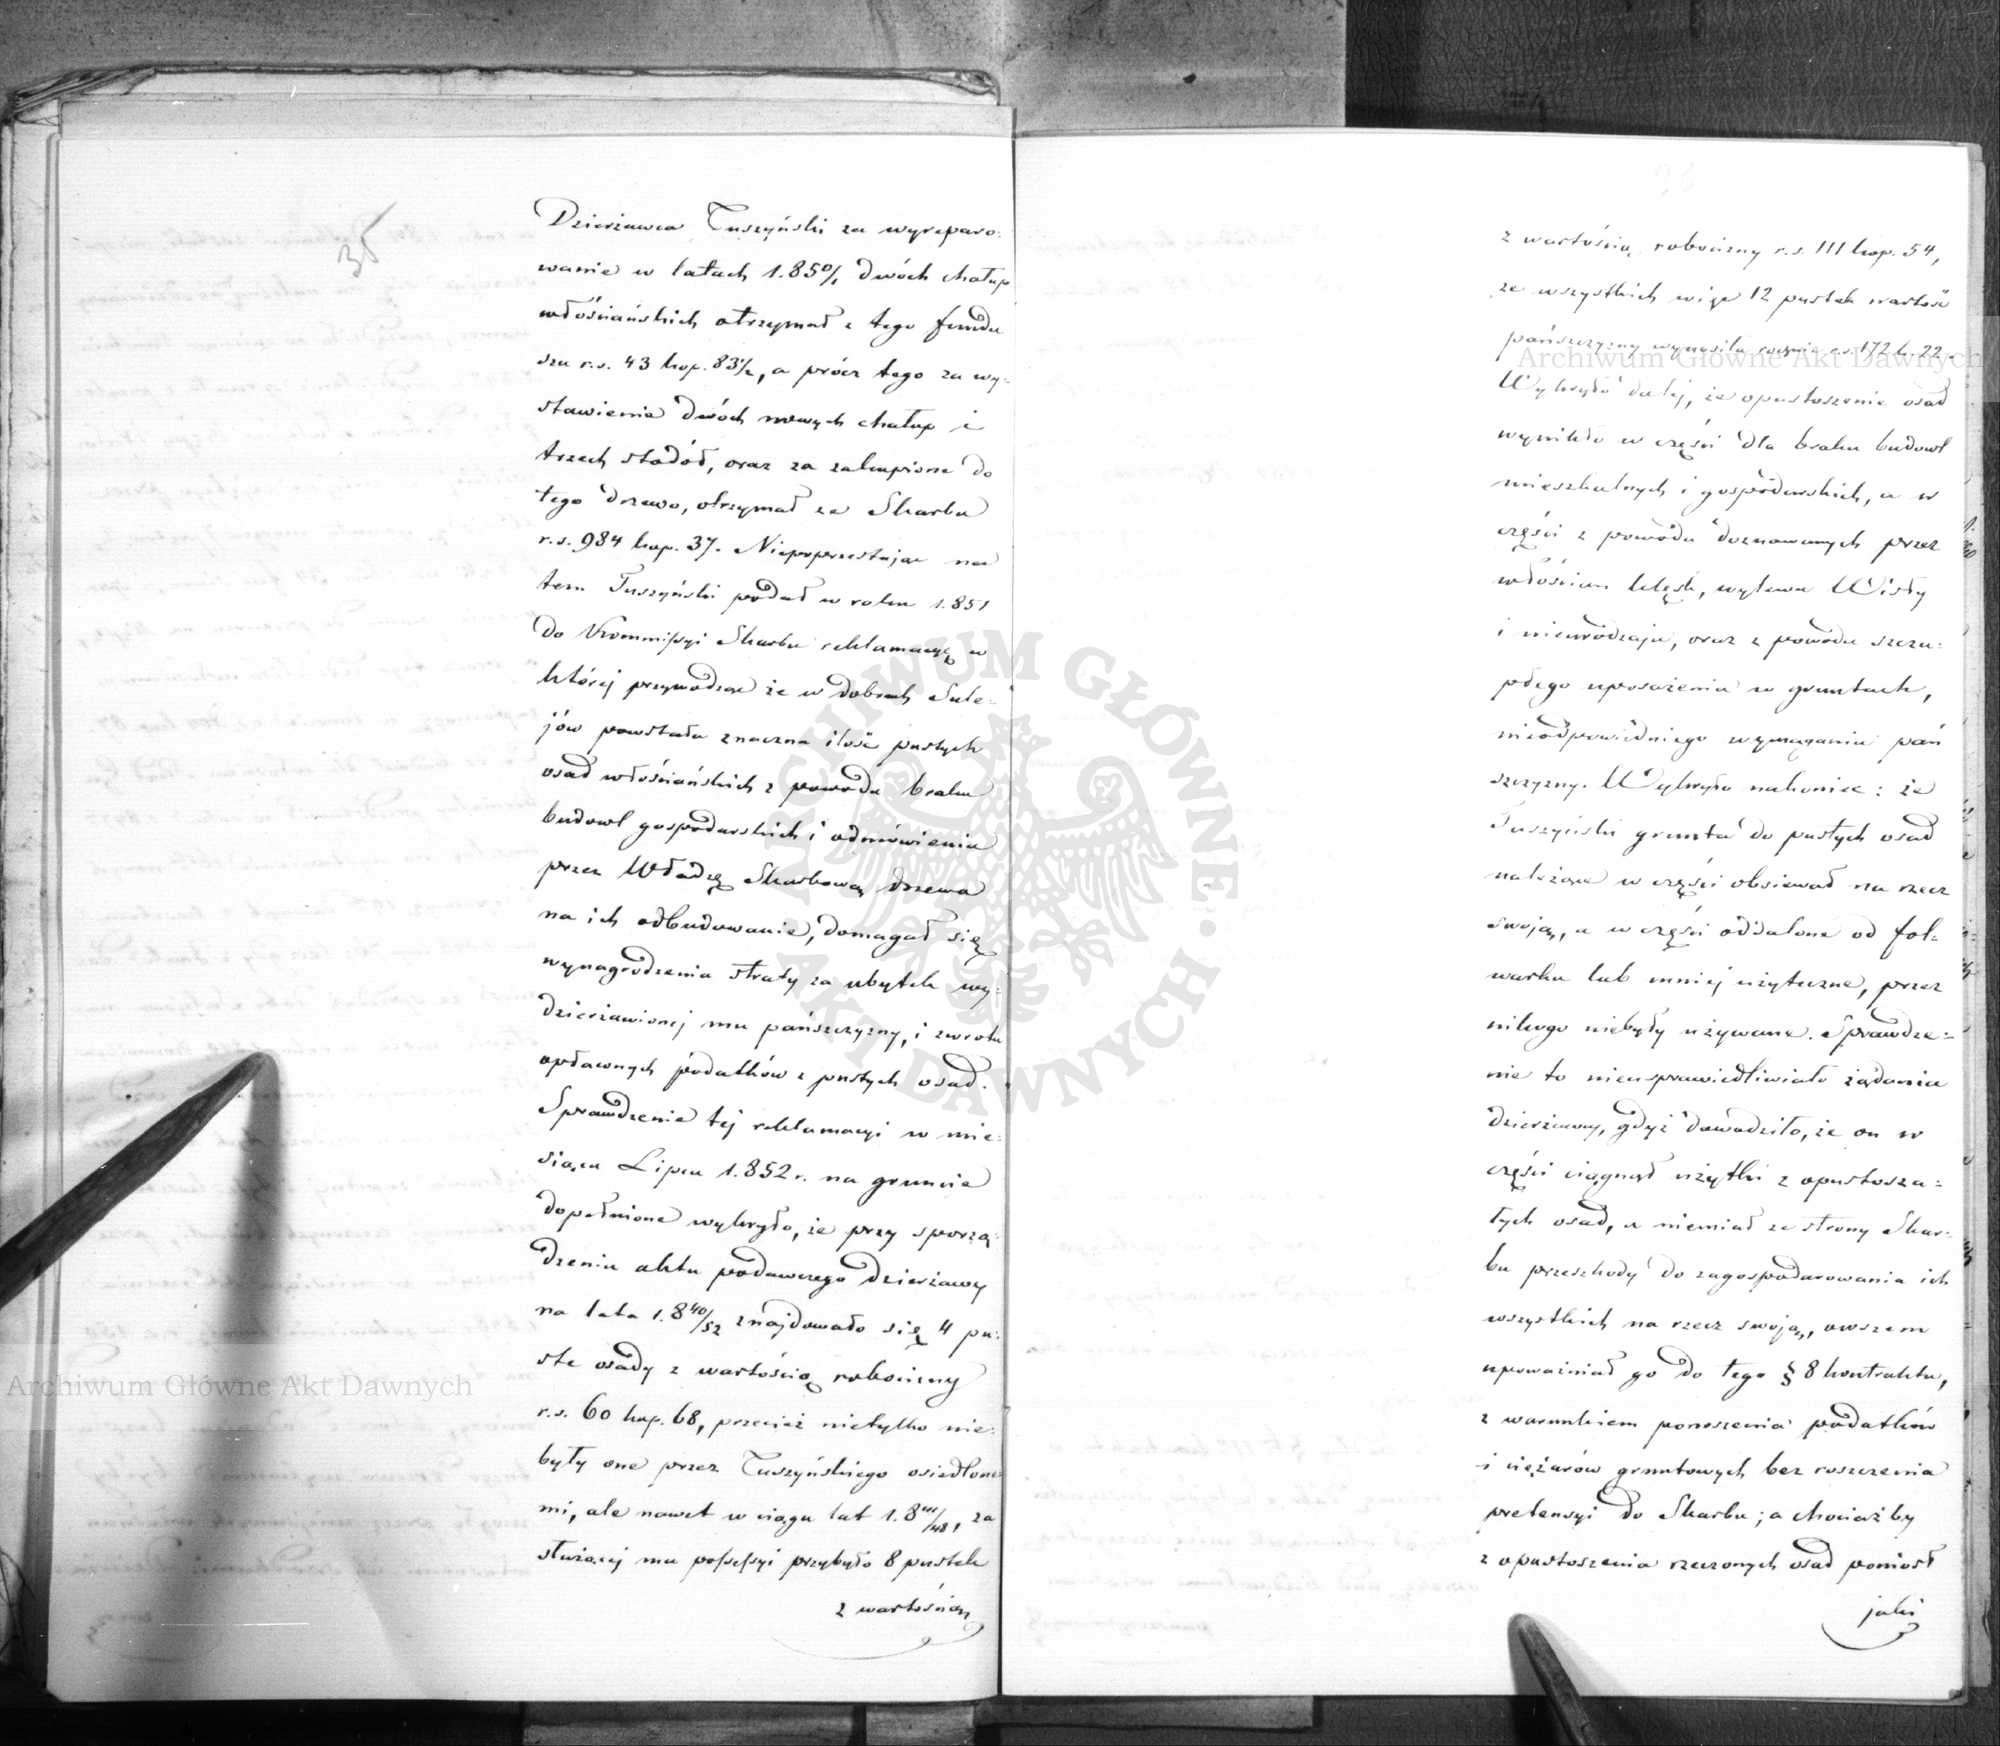 35
Dzierżawca Tuszyński za wyreparo-
wanie w latach 1.850/1 dwóch chałup
włościańskich otrzymał z tego fundu
szu r.s. 43 kop. 83½, a prócz tego za wy-
stawienie dwóch nowych chałup i
trzech stodół, oraz za zakupione do
tego drzewo, otrzymał ze Skarbu
r.s. 984 kop. 37. Niepoprzestając na
tem Tuszyński podał w roku 1.851
do Kommissyi Skarbu reklamacyę w
której przywodząc że w dobrach Sule-
jów powstała znaczna ilość pustych
osad włościańskich z powodu braku
budowl gospodarskich i odmówienia
przez Władzę Skarbową drzewa
na ich odbudowanie, domagał się
wynagrodzenia straty za ubytek wy-
dzierżawionej mu pańszczyzny, i zwrotu
opłaconych podatków z pustych osad.
Sprawdzenie tej reklamacyi w mie-
siącu Lipcu 1.852 r. na gruncie
dopełnione wykryło, że przy sporzą-
dzeniu aktu podawczego dzierżawy
na lata 1.840/52 znajdowało się 4 pu-
ste osady z wartością robocizny
r.s. 60 kop. 68, przecież nietylko nie-
były one przez Tuszyńskiego osiedlone-
mi, ale nawet w ciągu lat 1.841/48, za
służącej mu possessyi przybyło 8 pustek
z wartością
z wartością robocizny r.s. 111 kop. 54,
ze wszystkich więc 12 pustek wartość
pańszczyzny wynosiła rocznie r.s. 172 k. 22.
Wykryło dalej, że opustoszenie osad
wynikło w części dla braku budowl
mieszkalnych i gospodarskich, a w
części z powodu doznawanych przez
włościan klęsk, wylewu Wisły
i nieurodzaju, oraz z powodu szczu-
płego uposażenia w gruntach,
nieodpowiedniego wymaganiu pań
szczyzny. Wykryło nakoniec: że
Tuszyński grunta do pustych osad
należące w części obsiewał na rzecz
swoją, a w części oddalone od fol-
warku lub mniej użyteczne, przez
nikogo niebyły używane. Sprawdze-
nie to nieusprawiedliwiało żądania
dzierżawcy, gdyż dowodziło, że on w
części ciągnął użytki z opustosza-
łych osad, a niemiał ze strony Skar-
bu przeszkody do zagospodarowania ich
wszystkich na rzecz swoją, owszem
upoważniał go do tego § 8 kontraktu,
z warunkiem ponoszenia podatków
i ciężarów gruntowych bez roszczenia
pretensyi do Skarbu; a chociażby
z opustoszenia rzeczonych osad poniósł
jaki
Archiwum Główne Akt Dawnych
Archiwum Główne Akt Dawnych
ARCHIWUM GŁÓWNE AKT DAWNYCH